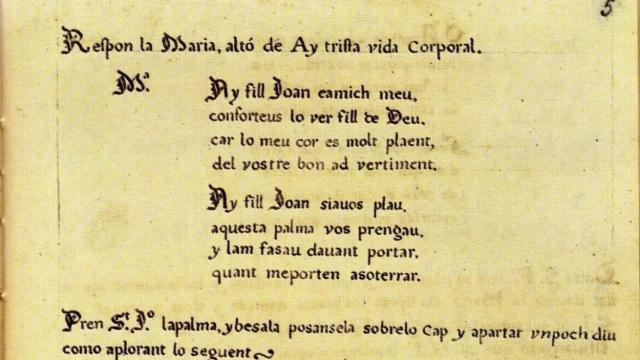 5
Respon la Maria, altó de Ay trista vida Corporal.
Mª.
Ay fill Joan eamich meu,
conforteus lo ver fill de Deu,
car lo meu cor es molt plaent,
del vostre bon ad vertiment.
Ay fill Joan siauos plau,
aquesta palma vos prengau,
y lam fasau dauant portar,
quant meporten asoterrar.
Pren St. Jo. lapalma, ybesala posansela sobrelo Cap y apartar vnpoch diu
como aplorant lo seguent